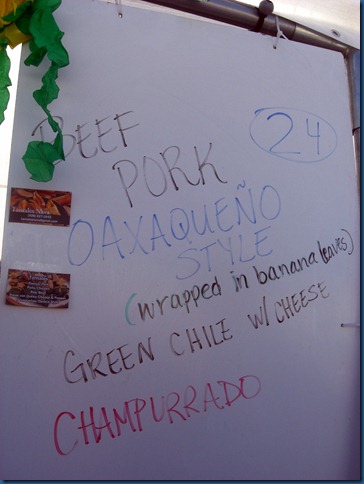 BEEF
24
PORK
OAXAQUEÑO
STYLE
(wrapped in banana leaves)
GREEN CHILE W/ CHEESE
CHAMPURRADO